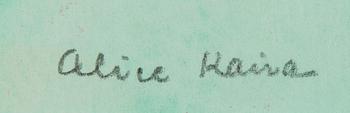 Alice Kaira